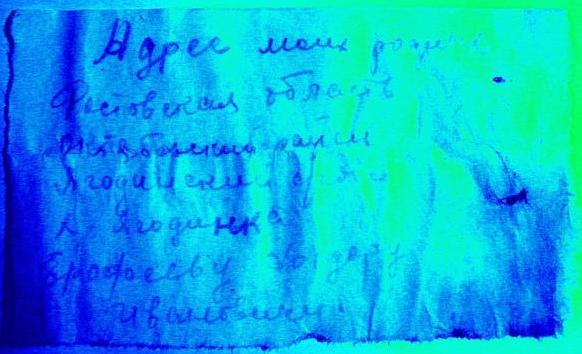 Адрес моих родных
Ростовская область
Октябрьский район
Ягодинский с/сов
х. Ягодинка
Ерофееву
Ивановичу